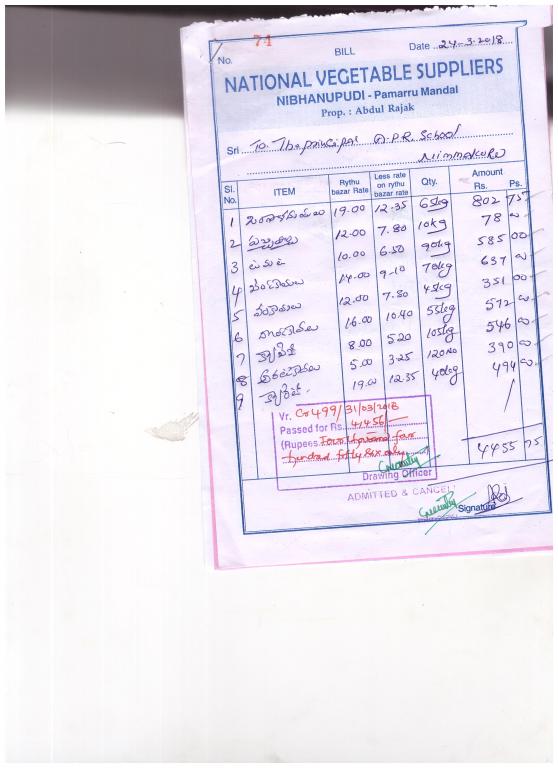 No. 71 BILL Date 24-3-2018
NATIONAL VEGETABLE SUPPLIERS
NIBHANUPUDI - Pamarru Mandal
Prop. : Abdul Rajak
Sri To The principal A.P.R. School
Nimmakuru
Sl. No. ITEM Rythu bazar Rate Less rate on rythu bazar rate Qty. Amount Rs. Ps.
1 19.00 12.35 65kg 802 75
2 12.00 7.80 10kg 78 00
3 టమటో 10.00 6.50 90kg 585 00
4 14.00 9.10 70kg 637 00
5 వంకాయలు 12.00 7.80 45kg 351 00
6 దొండకాయలు 16.00 10.40 55kg 572 00
7 క్యాబేజి 8.00 5.20 105kg 546 00
8 అరటికాయలు 5.00 3.25 120 No 390 00
9 క్యారెట్ 19.00 12.35 40kg 494 00
Vr. Cr 499/31/03/2018
Passed for Rs. 4456
(Rupees Four thousand four
hundred fifty six only
Drawing Officer
4455 75
ADMITTED & CANCEL
Signature